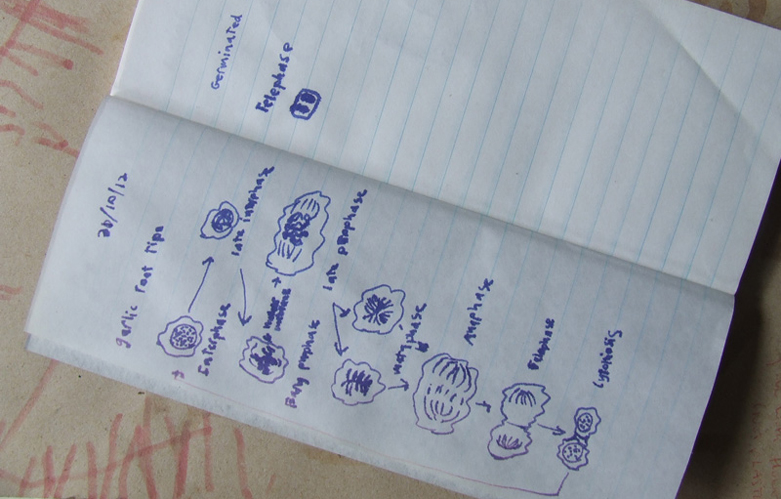 20/10/12
garlic root tips
Interphase
late interphase
Early prophase
late prophase
metaphase
Anaphase
Telophase
Germinated
Telephase